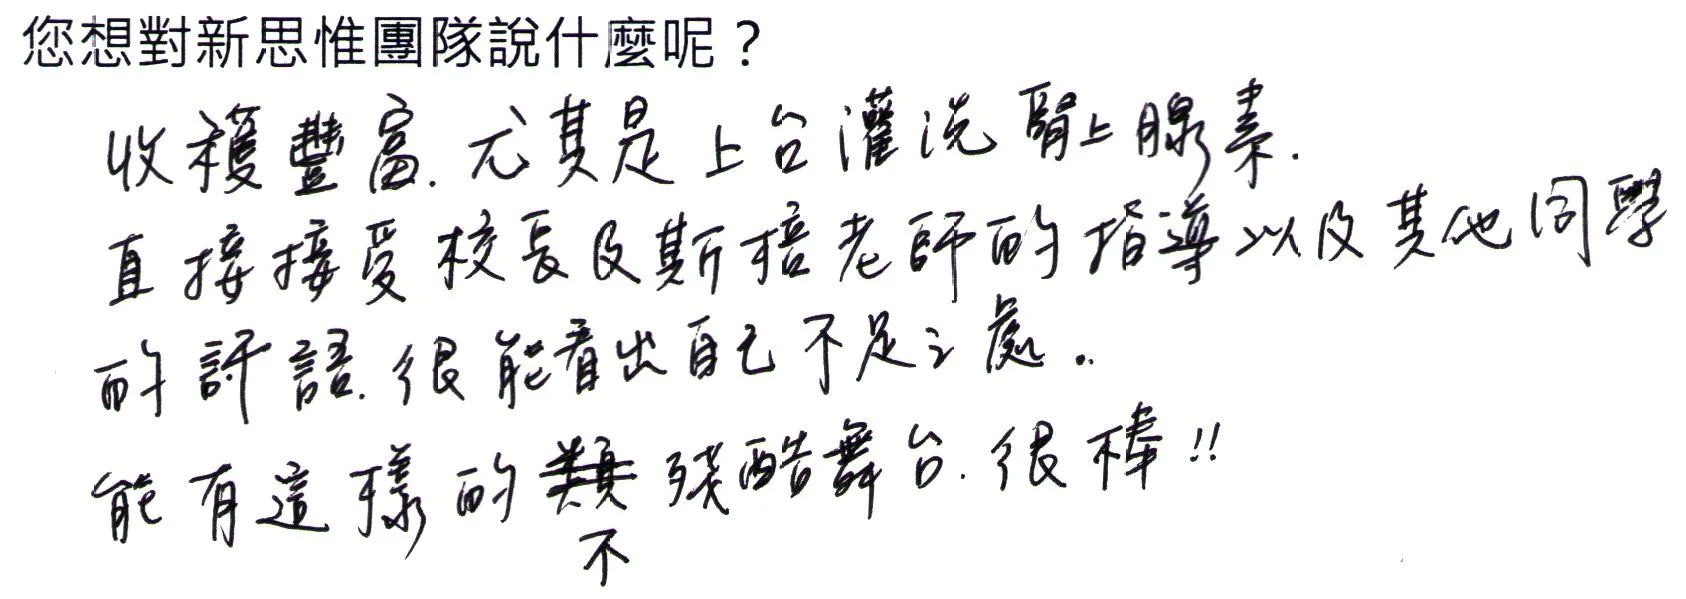 您想對新思惟團隊說什麼呢？
收穫豐富.尤其是上台灌洗腎上腺素.
直接接受校長及斯棓老師的指導以及其他同學
的評語.很能看出自己不足之處。
能有這樣的殘酷舞台.很棒!!
不